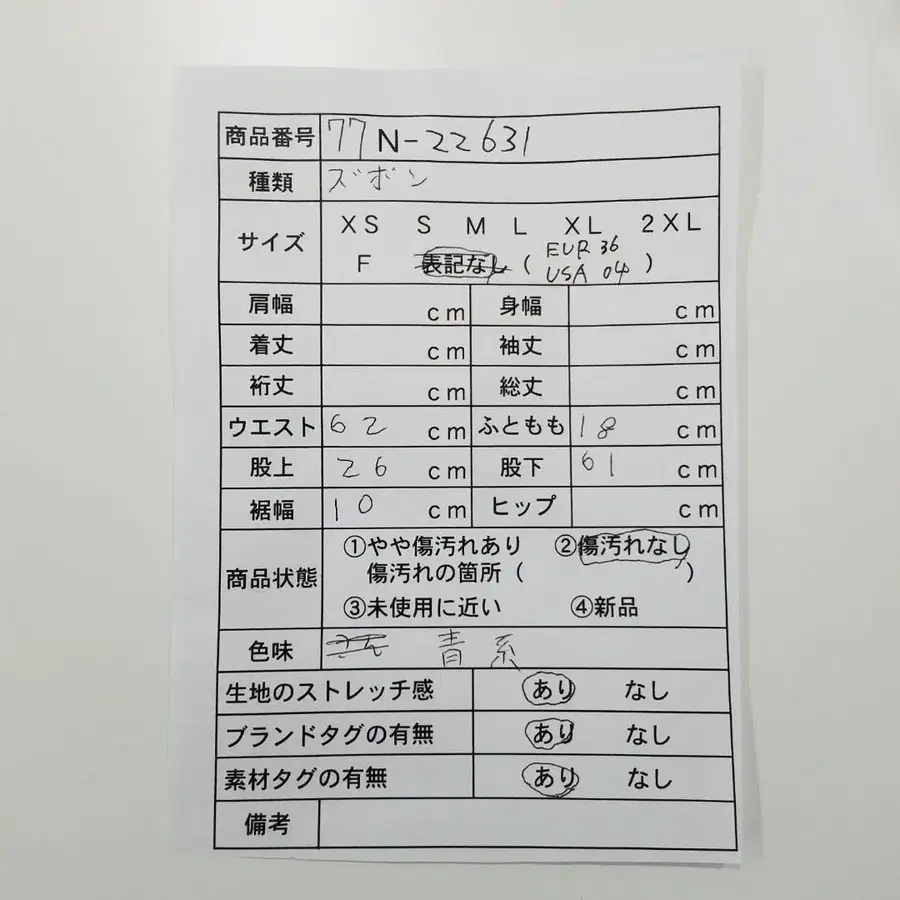 商品番号 77N-22631
種類 ズボン
サイズ XS S M L XL 2XL
F 表記なし ( EUR 36 USA 04 )
肩幅 cm 身幅 cm
着丈 cm 袖丈 cm
裄丈 cm 総丈 cm
ウエスト 62 cm ふともも 18 cm
股上 26 cm 股下 61 cm
裾幅 10 cm ヒップ cm
商品状態 ①やや傷汚れあり ②傷汚れなし
傷汚れの箇所 ( )
③未使用に近い ④新品
色味 青系
生地のストレッチ感 あり なし
ブランドタグの有無 あり なし
素材タグの有無 あり なし
備考